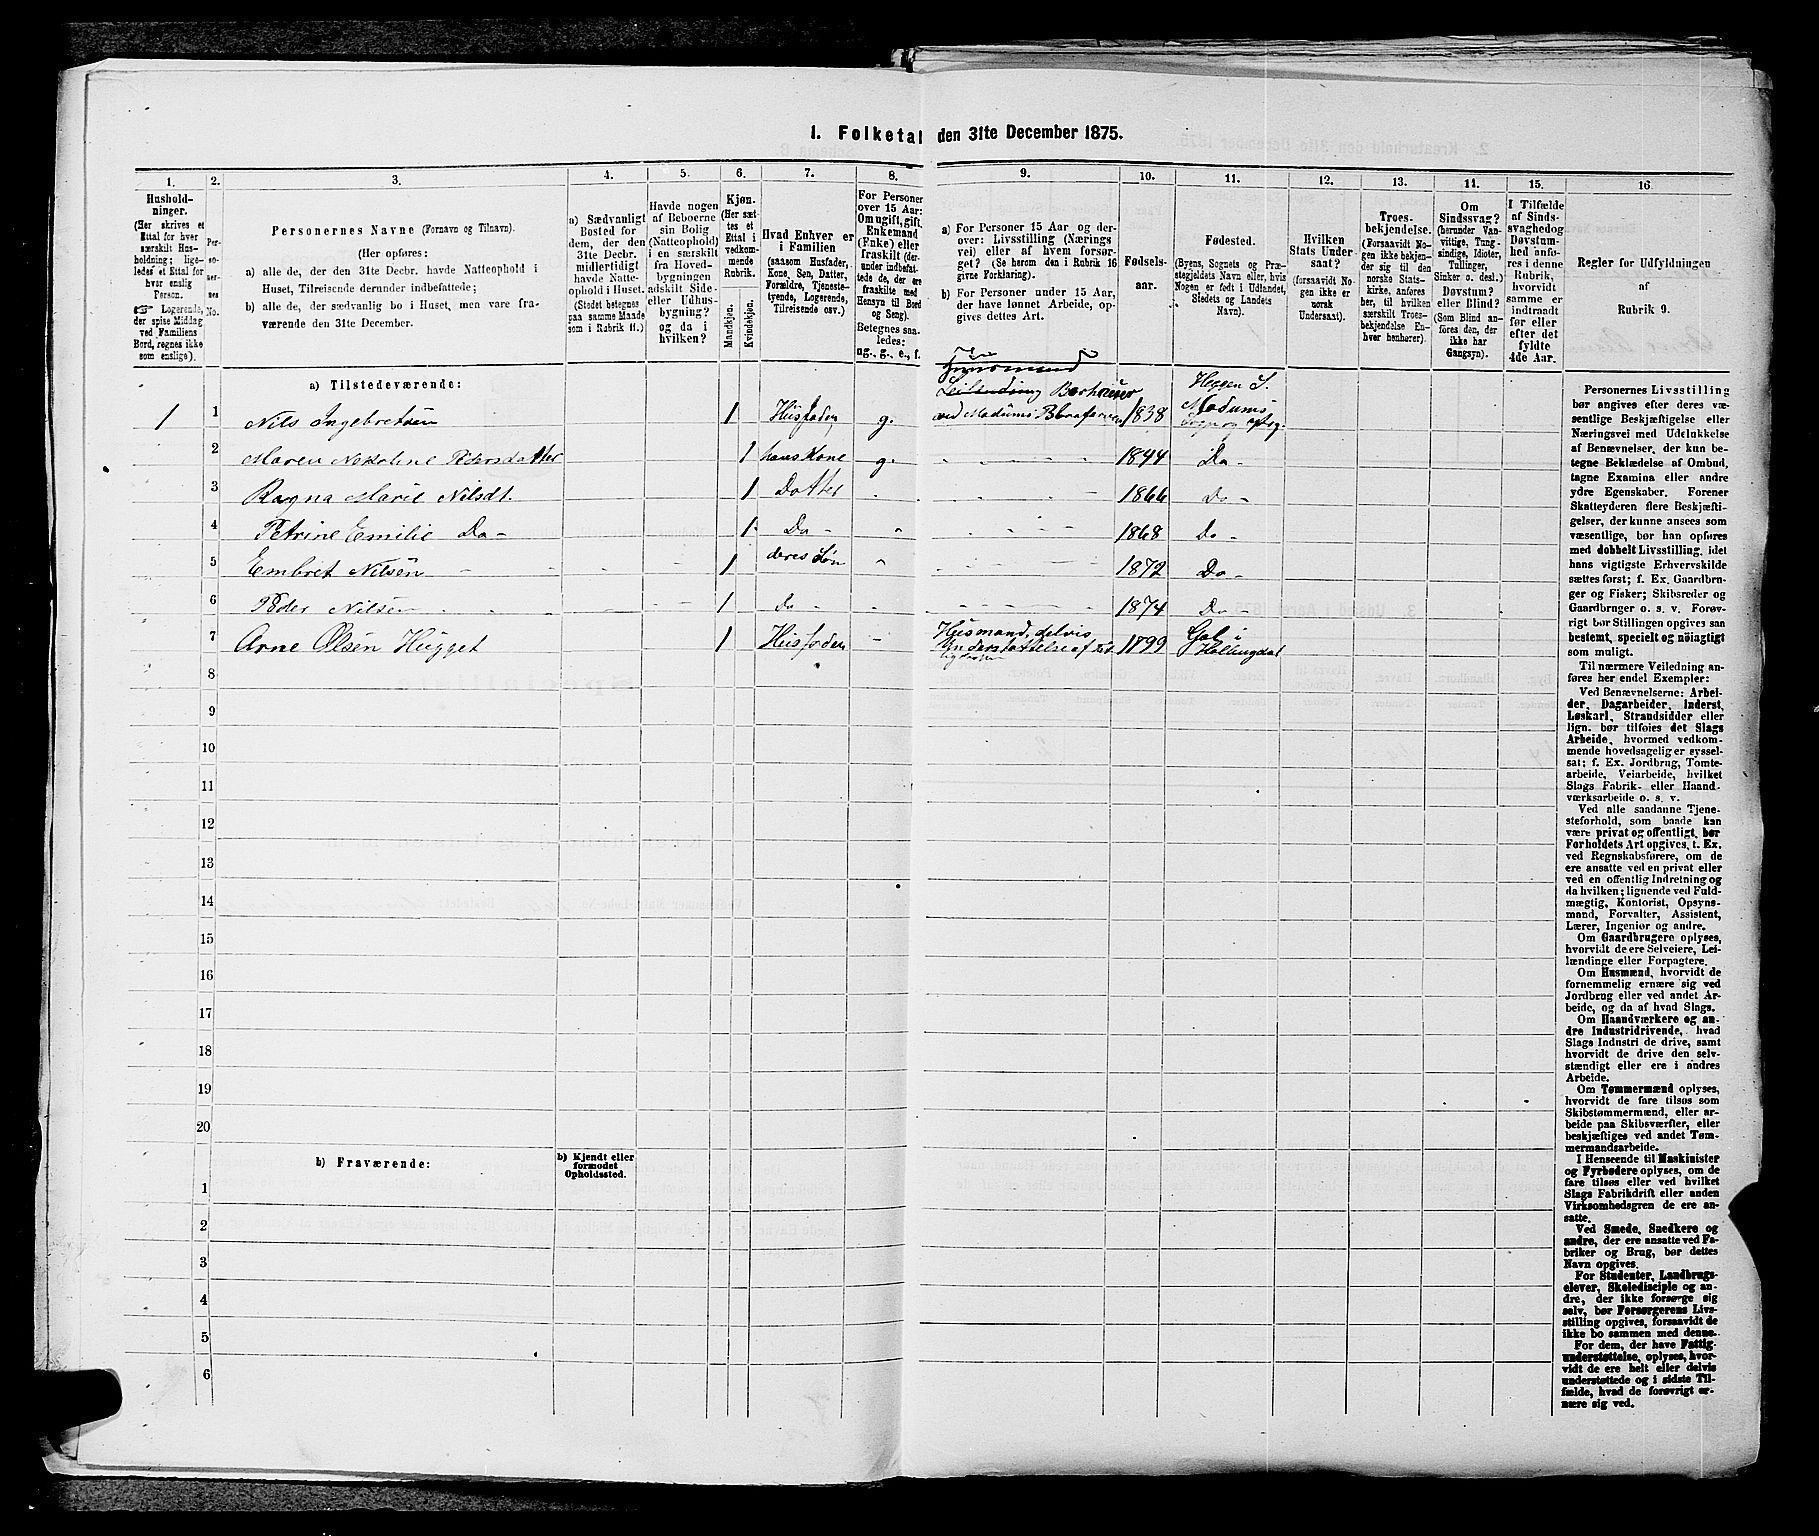 1. Folketal den 31te December 1875.
1. 2. 3. 4. 5. 6. 7. 8. 9. 10. 11. 12. 13. 14. 15. 16.
Hushold-
ninger.
(Her skrives et
Ettal for hver
særskilt Hus-
holdning; lige-
ledes et Ettal for
hver enslig
Person.
Logerende,
der spise Middag
ved Familiens
Bord, regnes ikke
som enslige).
Per-
so-
ner-
nes
No.
Personernes Navne (Fornavn og Tilnavn).
(Her opføres:
a) alle de, der den 31te Decbr. havde Natteophold i
Huset, Tilreisende derunder indbefattede;
b) alle de, der sædvanlig bo i Huset, men vare fra-
værende den 31te December.
a) Sædvanligt
Bosted for
dem, der den
31te Decbr.
midlertidigt
havde Natte-
ophold i Huset.
(Stedet betegnes
paa samme Maade
som i Rubrik 11.)
Havde nogen
af Beboerne
sin Bolig
(Natteophold)
i en særskilt
fra Hoved-
bygningen
adskilt Side-
eller Udhus-
bygning?
og da i
hvilken?
Kjøn.
(Her sæt-
tes et
Ettal i
vedkom-
mende
Rubrik.
Mandkjøn.
Kvindekjøn.
Hvad Enhver er
i Familien
(saasom Husfader,
Kone, Søn, Datter,
Forældre, Tjeneste-
tyende, Logerende,
Tilreisende osv.)
For Personer
over 15 Aar:
Om ugift, gift,
Enkemand
(Enke) eller
fraskilt (der-
under indbefat-
tede de, der ere
fraskilte med
Hensyn til Bord
og Seng).
Betegnes saa-
ledes:
ug., g., e., f.
a) For Personer 15 Aar og der-
over: Livsstilling (Nærings
vei) eller af hvem forsør-
get? (Se herom den i Rubrik 16
givne Forklaring).
b) For Personer under 15 Aar,
der have lønnet Arbeide, op-
gives dettes Art.
Fødsels-
aar.
Fødested.
(Byens, Sognets og Præ-
stegjeldets Navn eller, hvis
Nogen er født i Udlandet,
Stedets og Landets
Navn).
Hvilken
Stats Under-
saat?
(forsaavidt No-
gen ikke er
norsk
Undersaat).
Troes-
bekjendelse.
(Forsaavidt No-
gen ikke bekjen-
der sig til den
norske Stats-
kirke, anføres
her, til hvilken
særskilt Troes-
bekjendelse En-
hver henhører).
Om
Sindssvag?
(herunder Van-
vittige, Tung-
sindige, Idioter,
Tullinger,
Sinker o. desl.)
Døvstum?
eller Blind?
(Som Blind an-
føres den, der
ikke har
Gangsyn).
I Tilfælde
af Sinds-
svaghed og
Døvstum-
hed anfø-
res i denne
Rubrik,
hvorvidt
samme er
indtraadt
før eller
efter det
fyldte
4de Aar.
Regler for Udfyldningen
af
Rubrik 9.
a) Tilstedeværende:
Huusmand
Leilending Borhauer
1 1 Nils Ingebretsen 1 Husfader g. ved Modums Blaafarve 1838 Heggen S. Modums
2 Maren Nikoline Pedersdatter 1 hans Kone g. 1844 Do-
3 Ragna Marie Nilsdt. 1 Datter 1866 Do-
4 Petrine Emilie Do- 1 Do- 1868 Do-
5 Embret Nilsen 1 deres Søn 1872 Do-
6 Peder Nilsen 1 Do 1874 Do-
7 Arne Olsen Hugget 1 Husfader Husmand, delvis Understøttelse af 1799 Gol i Hallingdal
8
9
10
11
12
13
14
15
16
17
18
19
20
b) Fraværende:
b) Kjendt eller
formodet
Opholdssted.
1
2
3
4
5
6
Personernes Livsstilling
bør angives efter deres væ-
sentlige Beskjæftigelse eller
Næringsvei med Udelukkelse
af Benævnelser, der kun be-
tegne Beklædelse af Ombud,
tagne Examina eller andre
ydre Egenskaber. Forener
Skatteyderen flere Beskjæfti-
gelser, der kunne ansees som
væsentlige, bør han opføres
med dobbelt Livsstilling, idet
hans vigtigste Erhvervskilde
sættes først; f. Ex. Gaardbru-
ger og Fisker; Skibsreder og
Gaardbruger o. s. v. Forøv-
rigt bør Stillingen opgives saa
bestemt, specielt og nöiagtigt
som muligt.
Til nærmere Veiledning an-
føres her endel Exempler:
Ved Benævnelserne: Arbei-
der, Dagarbeider, Inderst,
Løskarl, Strandsidder eller
lign. bør tilføies det Slags
Arbeide, hvormed vedkom-
mende hovedsagelig er syssel-
sat; f. Ex. Jordbrug, Tomte-
arbeide, Veiarbeide, hvilket
Slags Fabrik- eller Haand-
værksarbeide o. s. v.
Ved alle saadanne Tjene-
steforhold, som baade kan
være privat og offentligt, bør
Forholdets Art opgives, t. Ex.
ved Regnskabsførere, om de
ere ansatte ved en privat eller
ved en offentlig Indretning og
da hvilken; lignende ved Fuld-
mægtig, Kontorist, Opsyns-
mand, Forvalter, Assistent,
Lærer, Ingeniør og andre.
Om Gaardbrugere oplyses,
hvorvidt de ere Selveiere, Lei-
lændinge eller Forpagtere.
Om Husmænd, hvorvidt de
fornemmelig ernære sig ved
Jordbrug eller ved andet Ar-
beide, og da af hvad Slags.
Om Haandværkere og an-
dre Industridrivende, hvad
Slags Industri de drive, samt
hvorvidt de drive den selv-
stændigt eller ere i andres
Arbeide.
Om Tømmermænd oplyses,
hvorvidt de fare tilsøs som
Skibstømmermænd, eller ar-
beide paa Skibsværfter, eller
beskjæftiges ved andet Tøm-
mermandsarbeide.
I Henseende til Maskinister
og Fyrbødere oplyses, om de
fare tilsøs eller ved hvilket
Slags Fabrikdrift eller anden
Virksomhedsgren de ere an-
satte.
Ved Smede, Snedkere og
andre, der ere ansatte ved Fa-
briker og Brug, bør dettes
Navn opgives.
For Studenter, Landbrugs-
elever, Skoledisciple og an-
dre, der ikke forsørge sig
selv, bør Forsørgerens Livs-
stilling opgives, forsaavidt de
ikke bo sammen med denne.
For dem, der have Fattig-
understøttelse, oplyses, hvor-
vidt de ere helt eller delvis
understøttede og i sidste Til-
fælde, hvad de forøvrigt er-
nære sig ved.